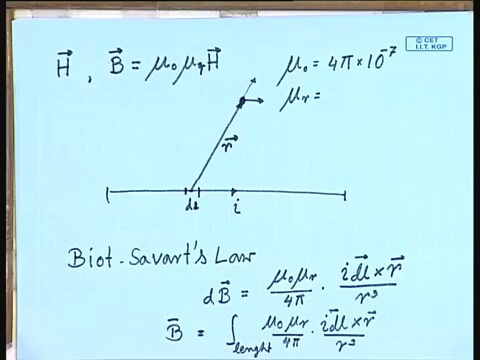 © CET
I.I.T. KGP
H⃗ , B⃗ = μ₀ μᵣ H⃗
μ₀ = 4π × 10⁻⁷
μᵣ =
r⃗
dl i
Biot-Savart's Law
dB⃗ = μ₀μᵣ/4π · i dl⃗ × r⃗ / r³
B̄ = ∫lenght μ₀μᵣ/4π · i dl⃗ × r⃗ / r³